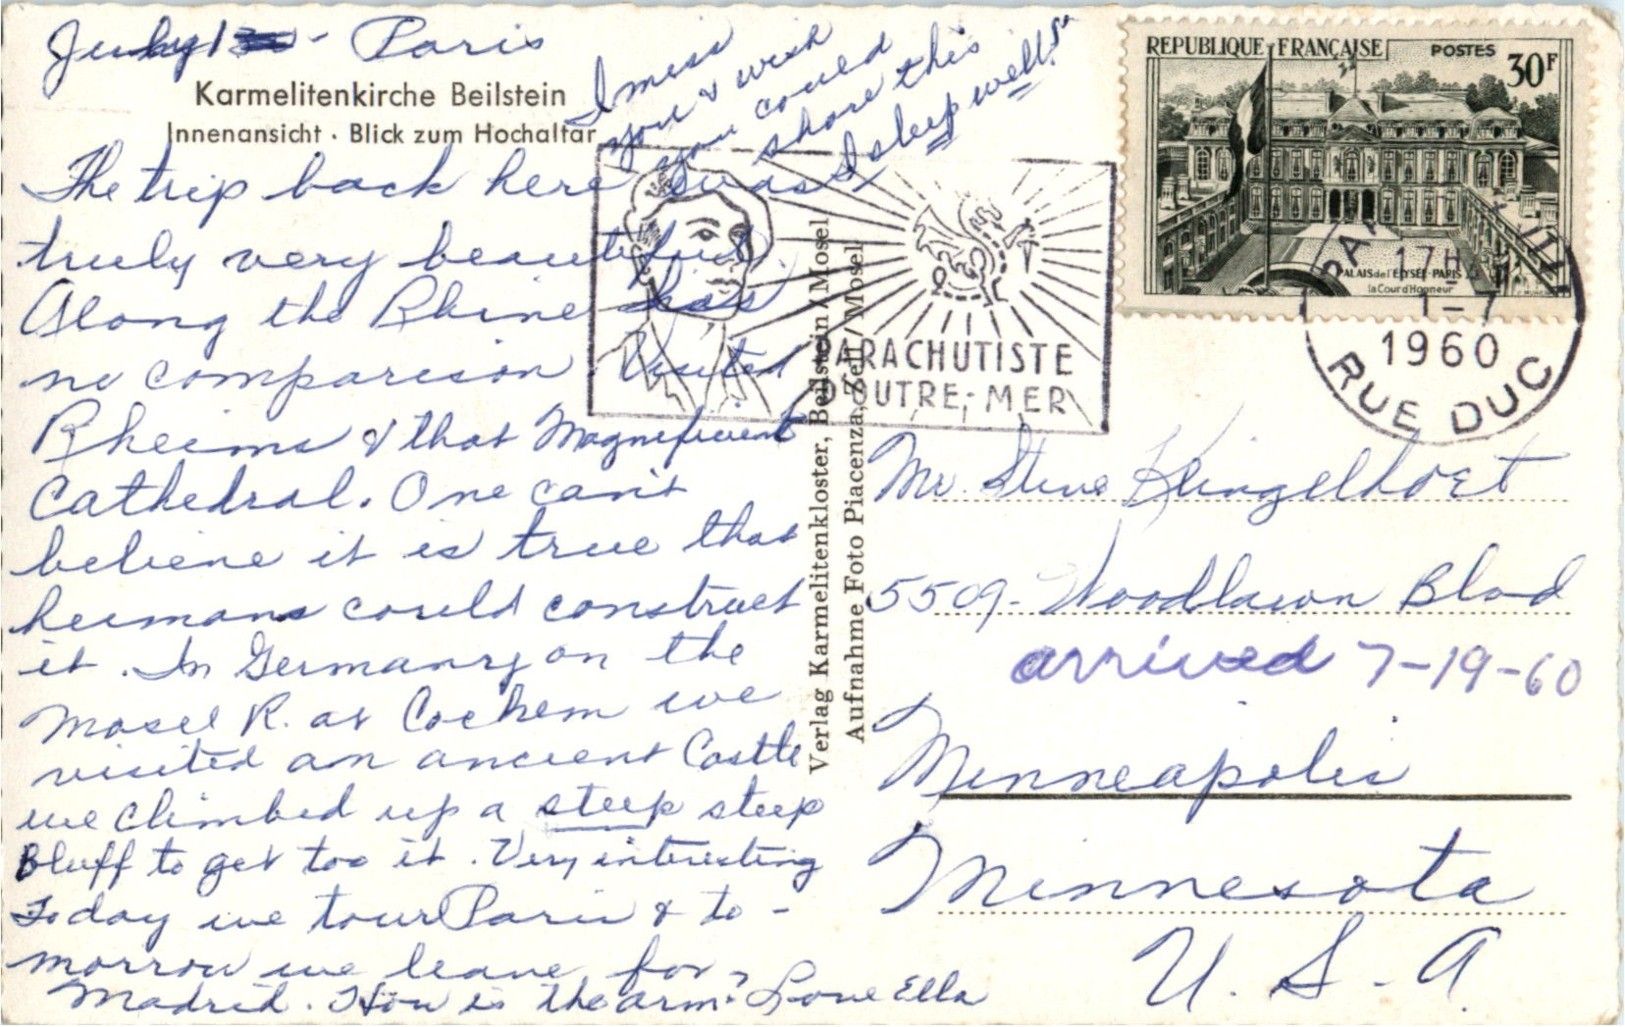 July 1 - Paris
Karmelitenkirche Beilstein
Innenansicht · Blick zum Hochaltar
The trip back here was
truly very beautiful.
Along the Rhine has
no comparison. Visited
Rheims & that Magnificent
Cathedral. One can't
believe it is true that
humans could construct
it. In Germany on the
Mosel R. at Cochem we
visited an ancient Castle
we climbed up a steep steep
Bluff to get too it. Very interesting
Today we tour Paris & to-
morrow we leave for
Madrid. How is the arm? Love Ella
I miss
you & wish
you could
share this
I sleep well!
Verlag Karmelitenkloster, Beilstein/Mosel
Aufnahme Foto Piacenza, Zell/Mosel
REPUBLIQUE FRANÇAISE POSTES
30F
PALAIS de l'ELYSÉE-PARIS
la Cour d'Honneur
PARACHUTISTE
D'OUTRE-MER
17H
1-7
1960
RUE DUC
Mr. Steve Klingelhoet
5509 - Woodlawn Blvd
arrived 7-19-60
Minneapolis
Minnesota
U.S.A.